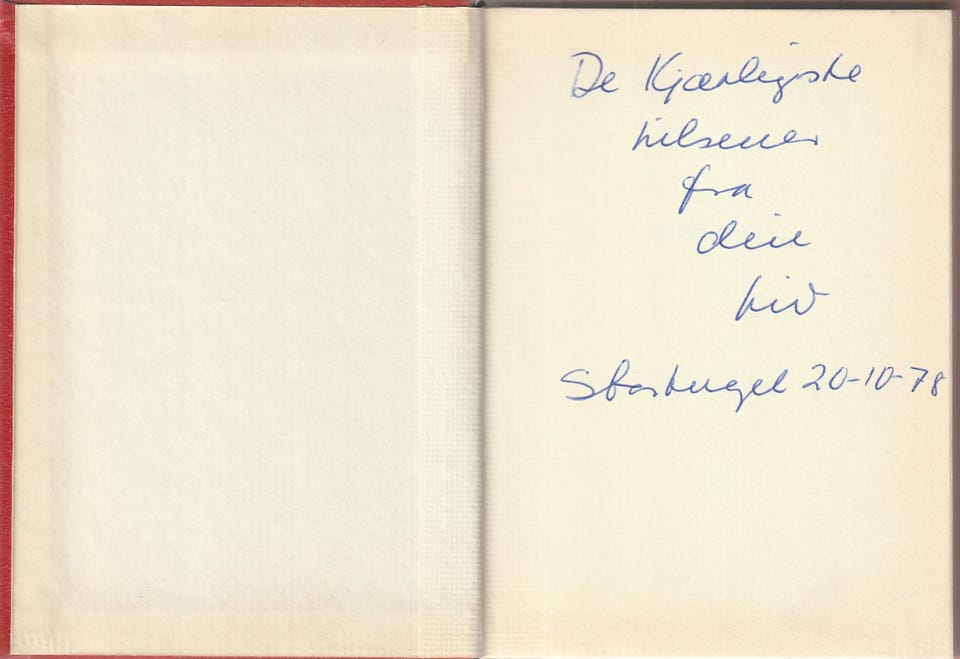 De Kjærligste
hilsener
fra
din
Liv
20-10-78